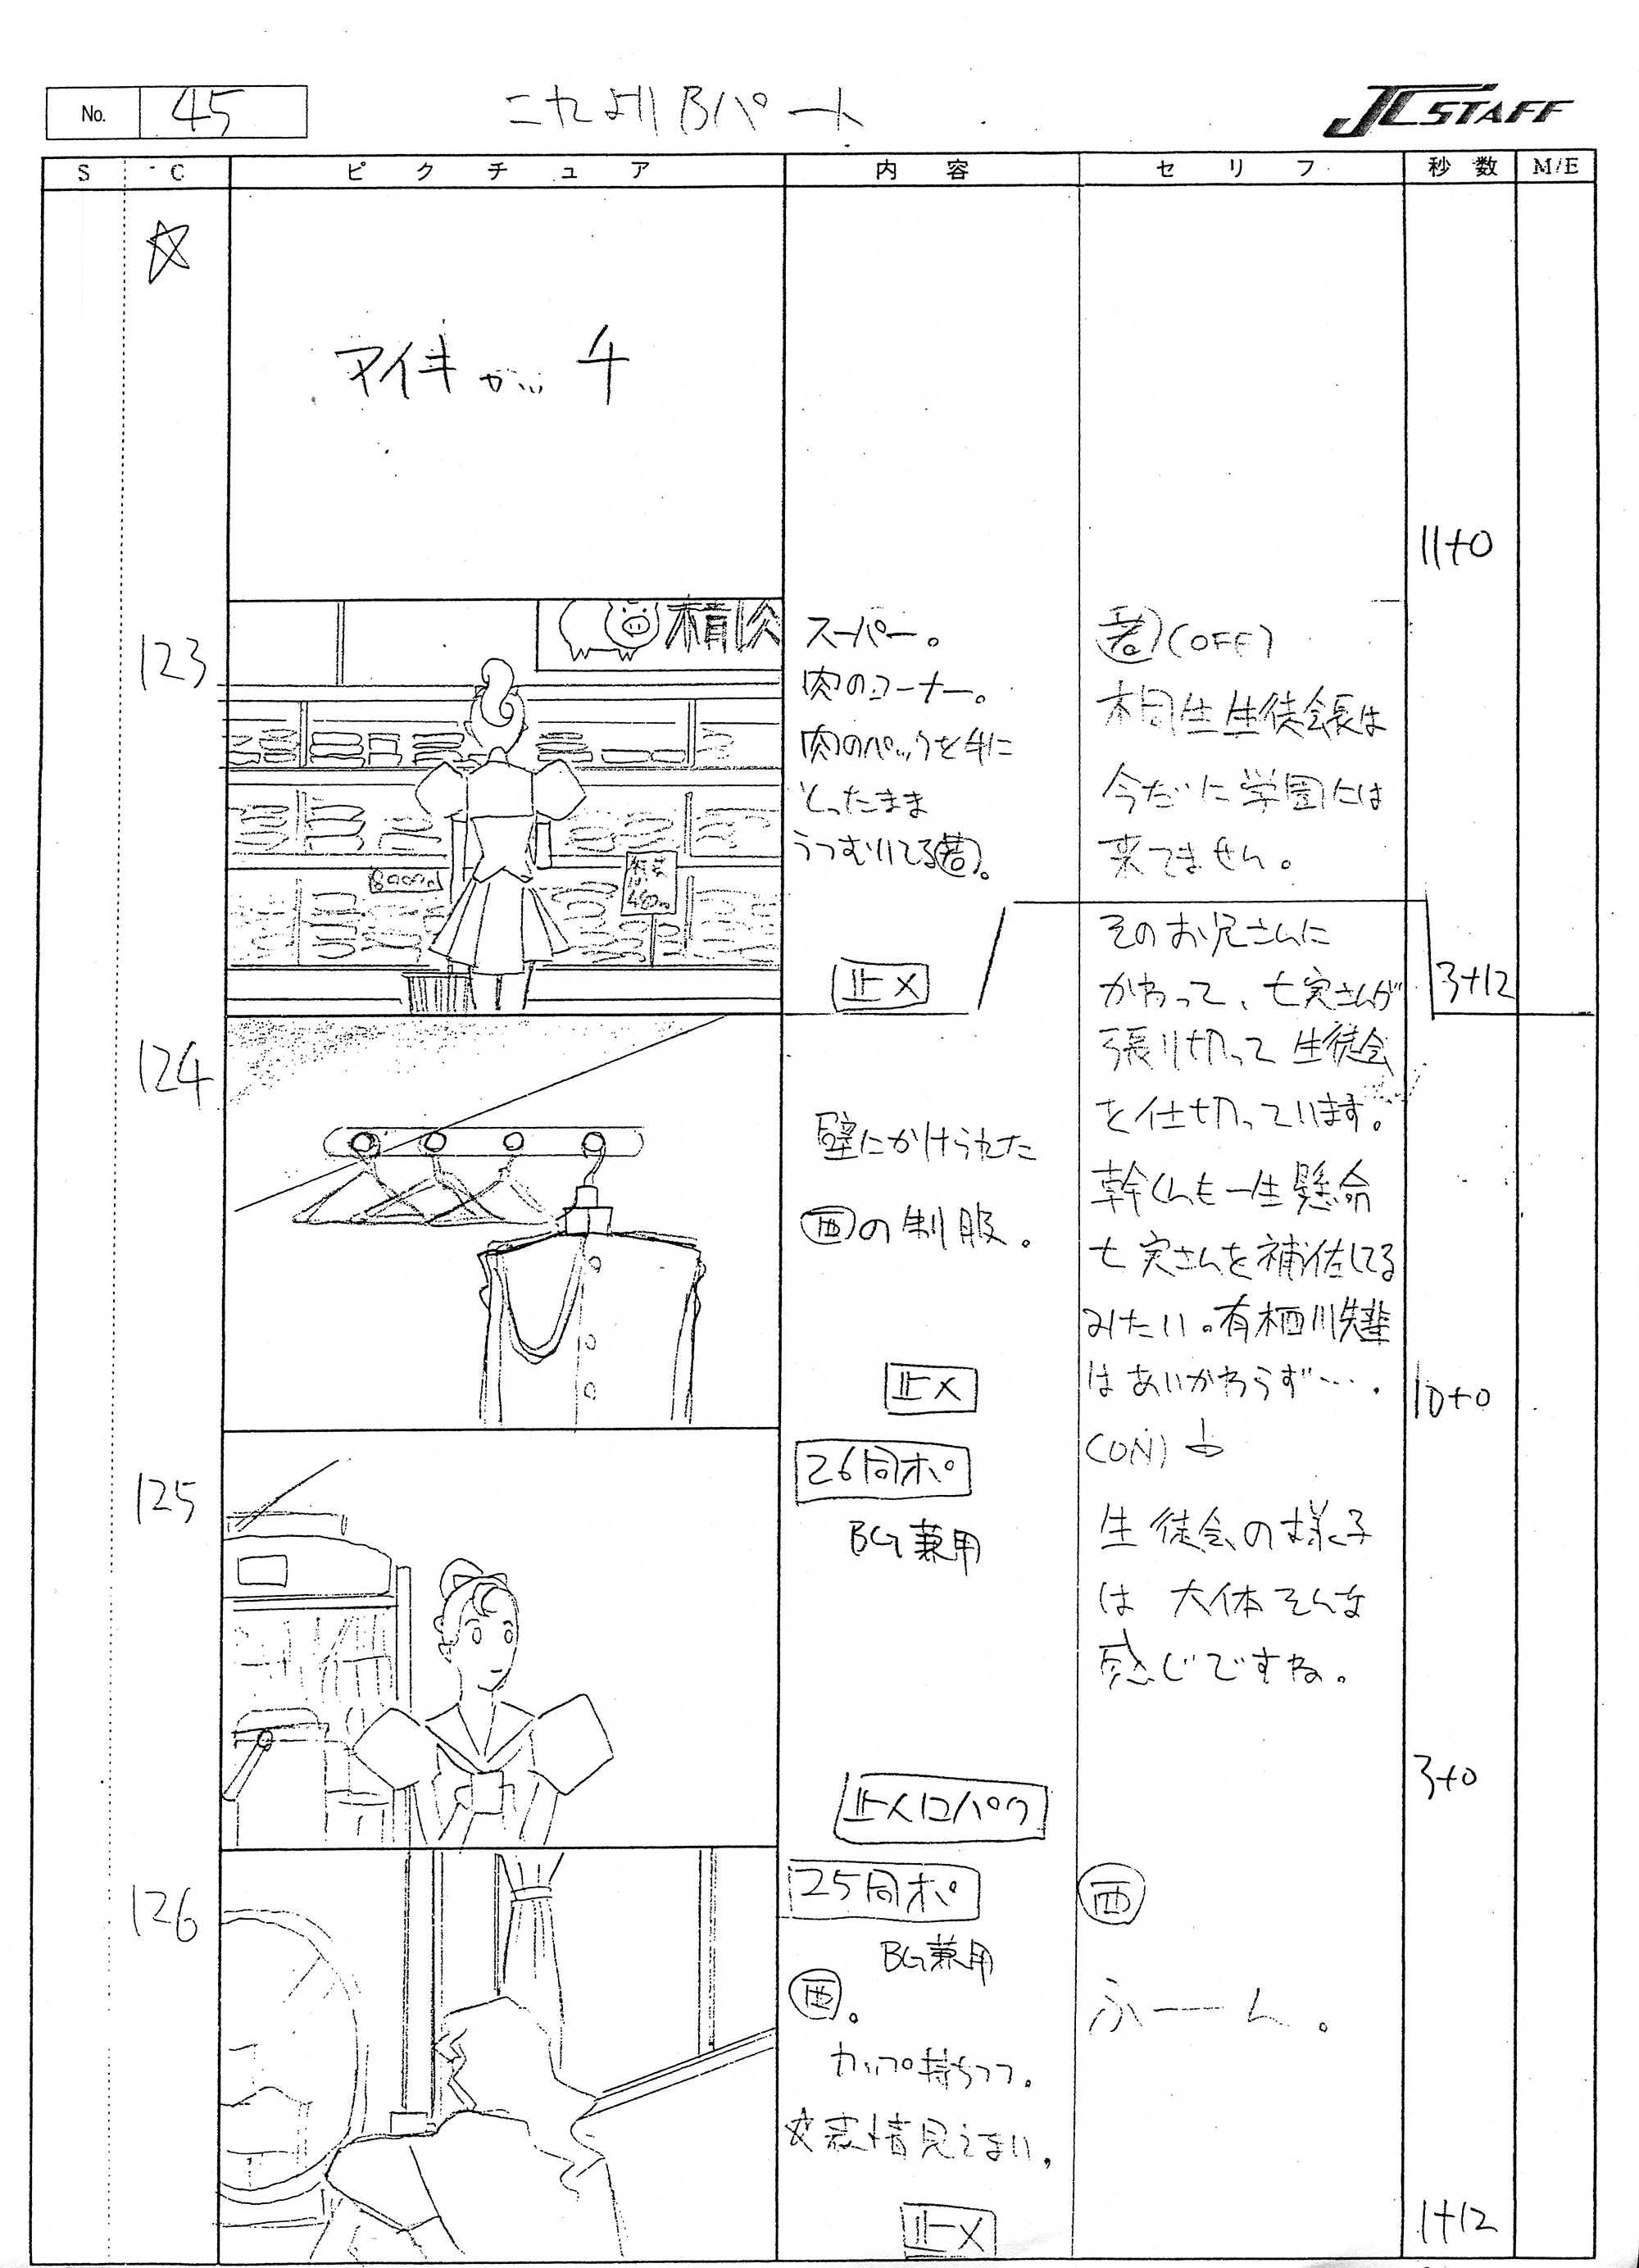 No. 45
これよりBパート
JC STAFF
S
C
ピクチュア
内容
セリフ
秒数
M/E
☆
アイキャッチ
11+0
123
精肉
スーパー。
肉のコーナー。
肉のパックを手に
とったまま
うつむいてる若。
止メ
若(OFF)
桐生生徒会長は
今だに学園には
来てません。
3+12
124
壁にかけられた
西の制服。
止メ
そのお兄さんに
かわって、七実さんが
張り切って生徒会
を仕切っています。
幹くんも一生懸命
七実さんを補佐してる
みたい。有栖川先輩
はあいかわらず…。
10+0
125
26同ポ
BG兼用
止メ口パク
(ON)
生徒会の様子
は大体そんな
感じですね。
3+0
126
25同ポ
BG兼用
西。
カップ持ちつつ。
☆表情見えない。
止メ
西
ふーーん。
1+12